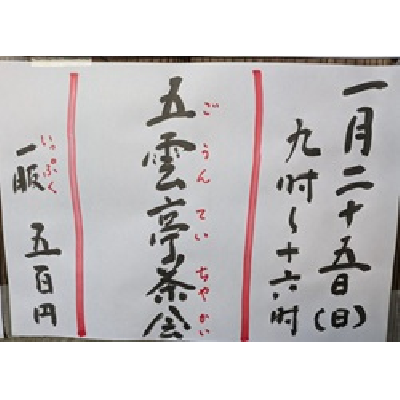 一月二十五日(日)
九時~十六時
五雲亭茶会
ごうんていちゃかい
一服 五百円
いっぷく